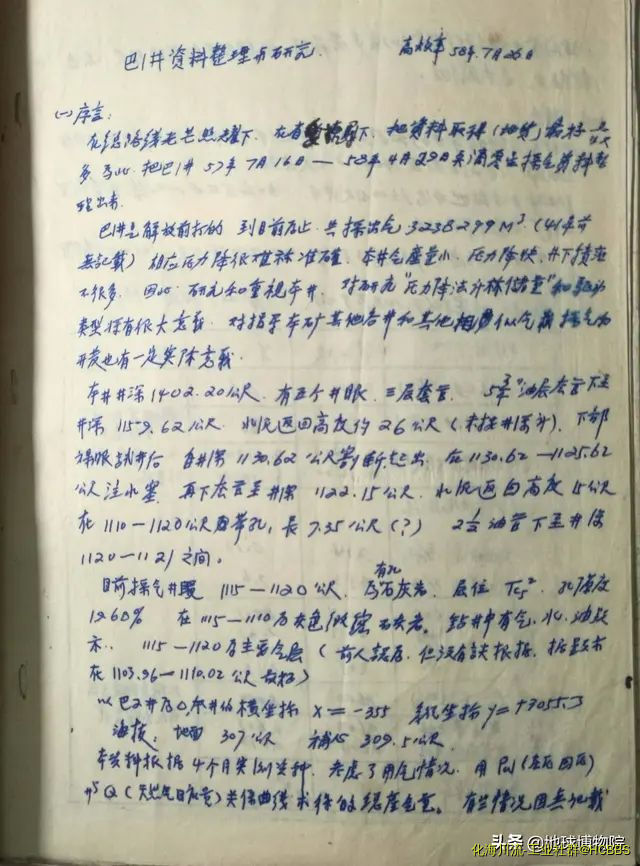 巴1井资料整理与研究.
高效率 58年.7月26日
(一)序言:
在总路线光芒照耀下. 在省 下. 把资料取得(地质)
多. 为此. 把巴1井 57年7月16日—58年4月29日 资料整
理出来.
巴1井是解放前打的 到目前为止 共採出气 3238299 M³. (41年前
無记载) 相应压力降低 准确. 本井气產量小. 压力降快. 井下情况
不很多. 因此. 研究和重视本井. 对研究"压力降法计标储量"和
类型採有很大意义. 对指导本矿其他各井和其他相似气藏採气与
开发也有一定实际意义.
本井井深1402.20公尺. 有五个井眼. 三层套管. 5¾" 油层套管下至
井深 1159.62公尺. 水泥返回高度约26公尺 (未採井深计). 下部
裸眼试井后 自井深 1130.62 公尺割断起出. 在1130.62—1125.62
公尺注水塞. 再下套管至井深 1122.15公尺. 水泥返回高度 15公尺
在 1110—1120公尺为带孔, 長 7.35公尺(?) 2½油管下至井深
1120—1121之间.
目前採气井段 1115—1120公尺. 为有孔石灰岩. 层位 Tc₅². 孔隙度
19.60% 在1115—1110为灰色 石灰岩. 钻井中有气. 水. 油显
示. 1115—1120为主要气层 (前人認为. 但没有談根据. 据显示
在1103.96—1110.02公尺 )
以巴2井为0, 本井的横坐标 X=-355 纵坐标 y=+7055.3
海拔: 地面 307公尺 補心 309.5公尺.
本资料根据4个月实测资料. 考虑了用气情况. 用
与Q(天然气日产量)关係曲线求得的绝產气量. 有些情况因無记载
头条@地球博物院